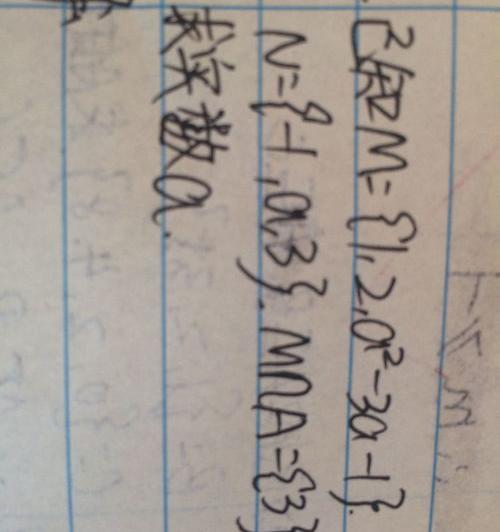 已知M={1,2,a²-3a-1}.
N={-1,a,3}.M∩A={3}
求实数a.